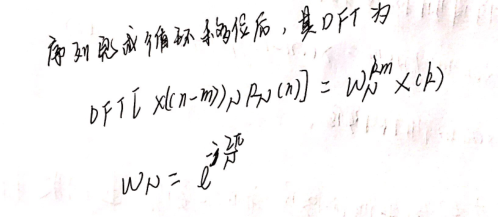 序列形成循环移位后，其DFT为
DFT[x((n-m))_N R_N(n)] = W_N^{km} X(k)
W_N = e^{-j\frac{2π}{N}}